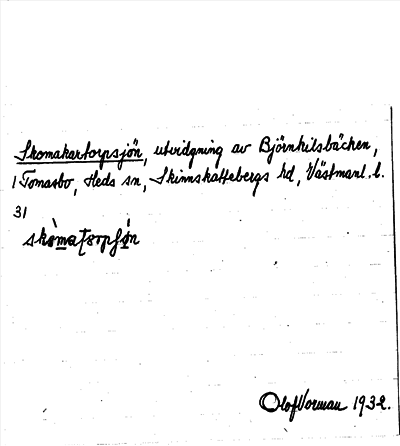 Skomakartorpsjön, utvidgning av Björnhilsbäcken,
1 Tomasbo, Heds sn, Skinnskattebergs hd, Västmanl. l.
31
Olof Vorman 1932.